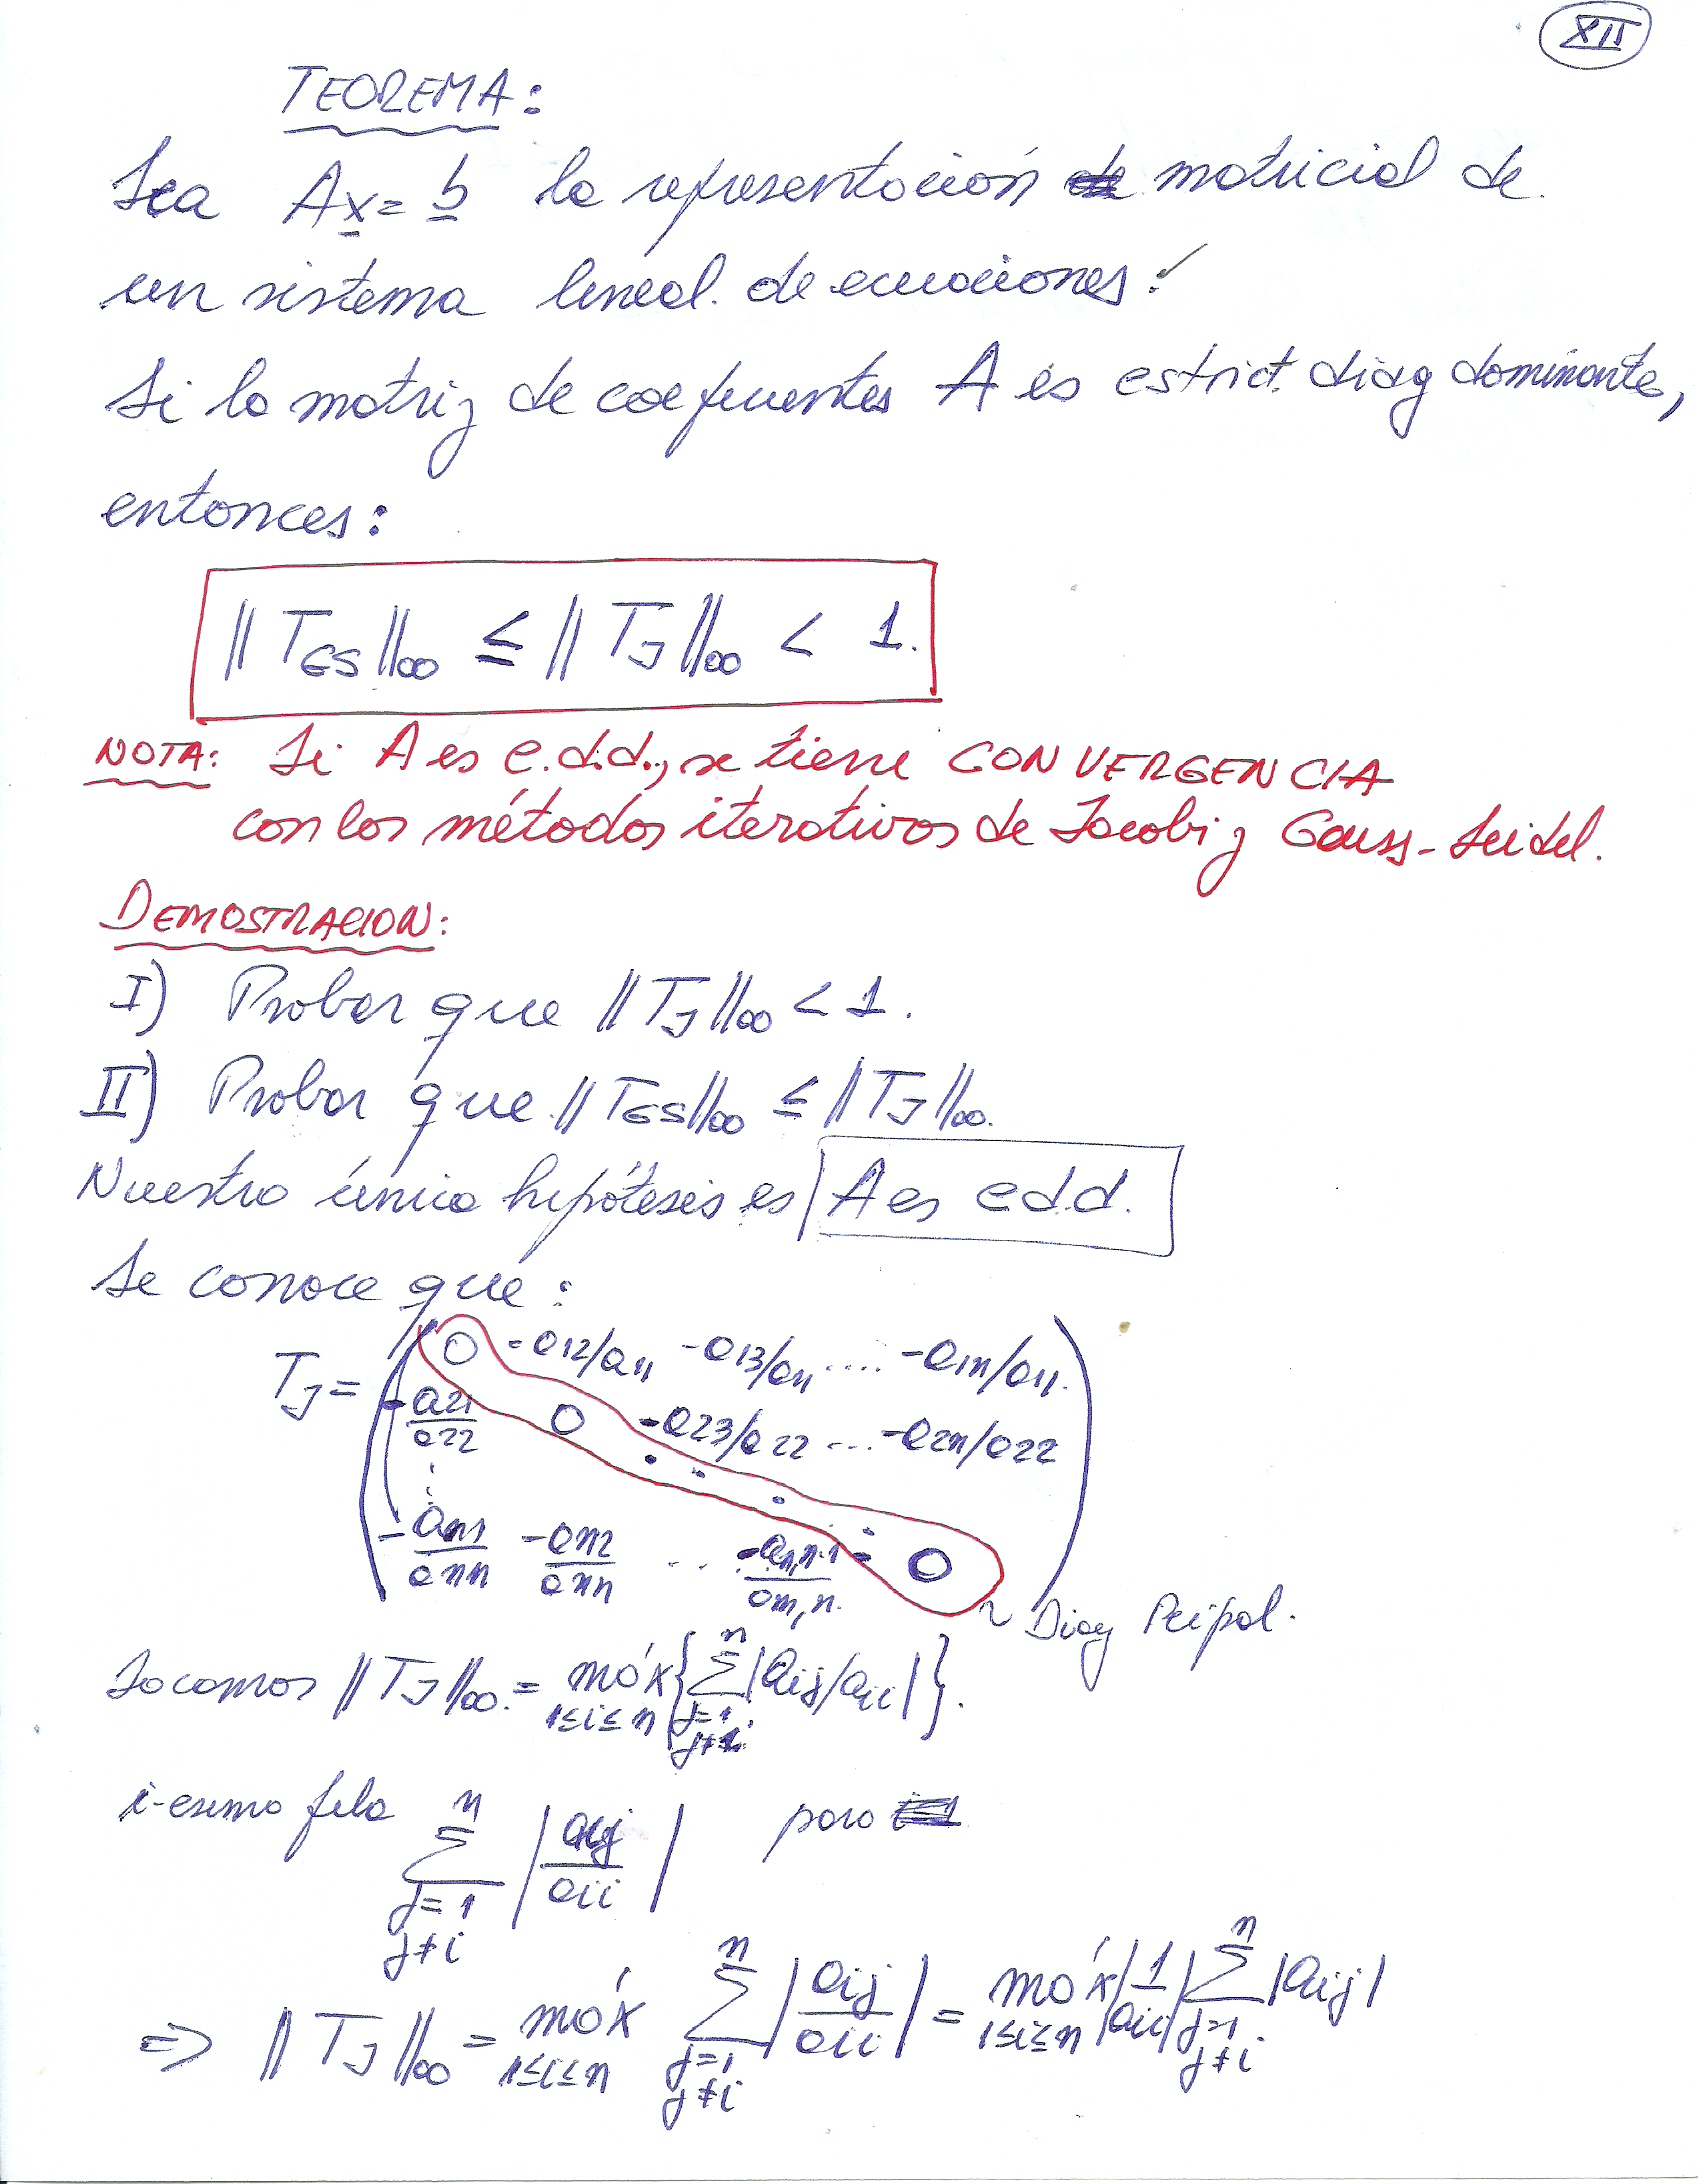 XII
TEOREMA:
Sea Ax = b la representación matricial de
un sistema lineal de ecuaciones:
Si la matriz de coeficientes A es estrict. diag dominante,
entonces:
|| T_GS ||∞ ≤ || T_J ||∞ < 1.
NOTA: Si A es e.d.d., se tiene CONVERGENCIA
con los métodos iterativos de Jacobi y Gauss-Seidel.
DEMOSTRACION:
I) Probar que || T_J ||∞ < 1.
II) Probar que || T_GS ||∞ ≤ || T_J ||∞.
Nuestra única hipótesis es A es e d.d.
Se conoce que:
T_J = ( 0 -a12/a11 -a13/a11 .... -a1n/a11
-a21/a22 0 -a23/a22 ... -a2n/a22
⋮ ⋱
-an1/ann -an2/ann ... -an,n-1/an,n 0 )
Diag Pcipal.
Sacamos || T_J ||∞ = máx 1≤i≤n { Σ j=1 j≠i n |aij/aii| }.
i-esima fila Σ j=1 j≠i n |aij/aii| para
⇒ || T_J ||∞ = máx 1≤i≤n Σ j=1 j≠i n |aij/aii| = máx 1≤i≤n |1/aii| Σ j=1 j≠i n |aij|